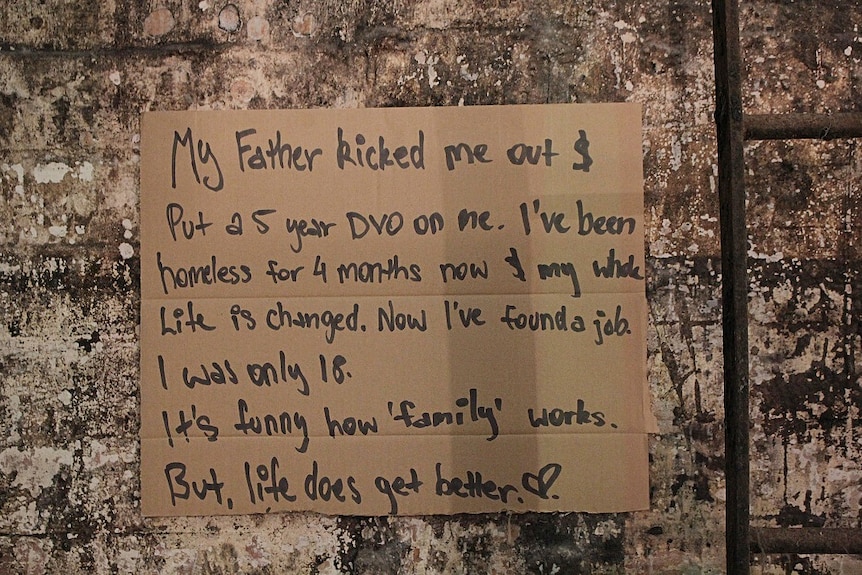 My Father kicked me out $
Put a 5 year DVO on me. I've been
homeless for 4 months now $ my whole
Life is changed. Now I've found a job.
I was only 18.
It's funny how 'family' works.
But, life does get better.♡.